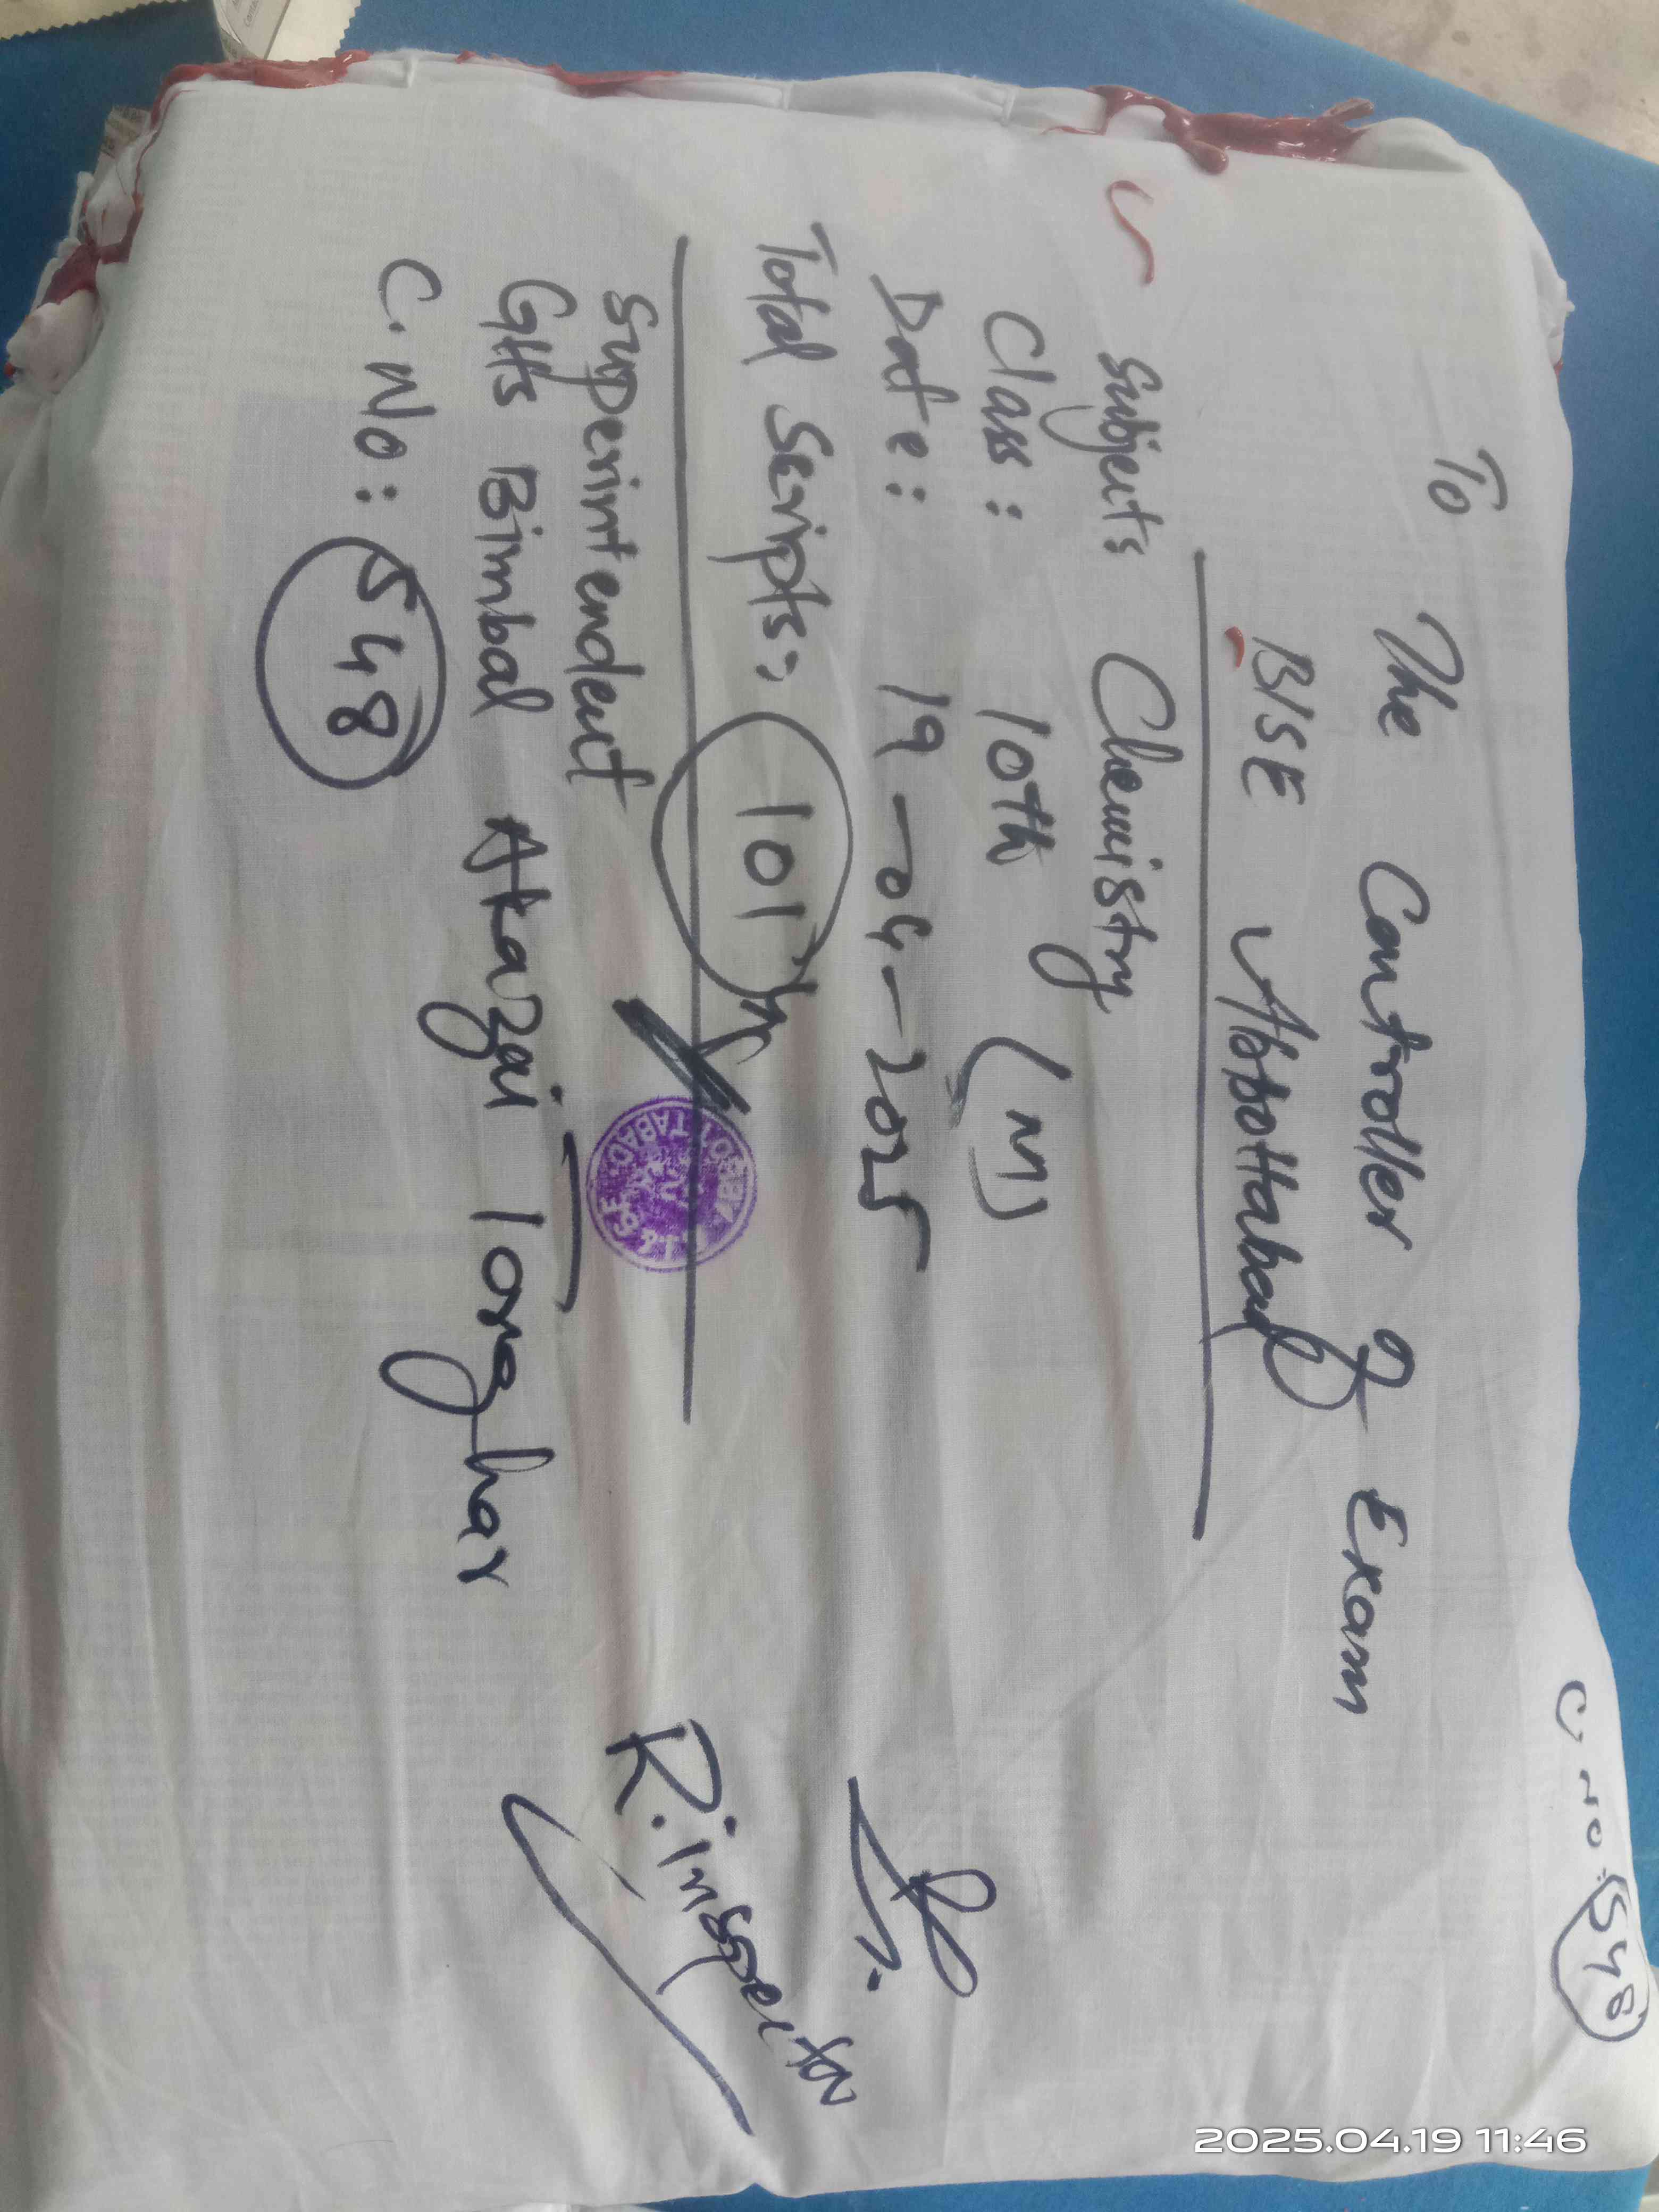 C No: 548
To
The Controller of Exam
BISE Abbottabad
Subject: Chemistry
Class: 10th (M)
Date: 19-04-2025
Total Scripts: 101
Superintendent
GHS Bimbal Akazai Torghar
C. No: 548
R.inspector
ABBOTTABAD
2025.04.19 11:46